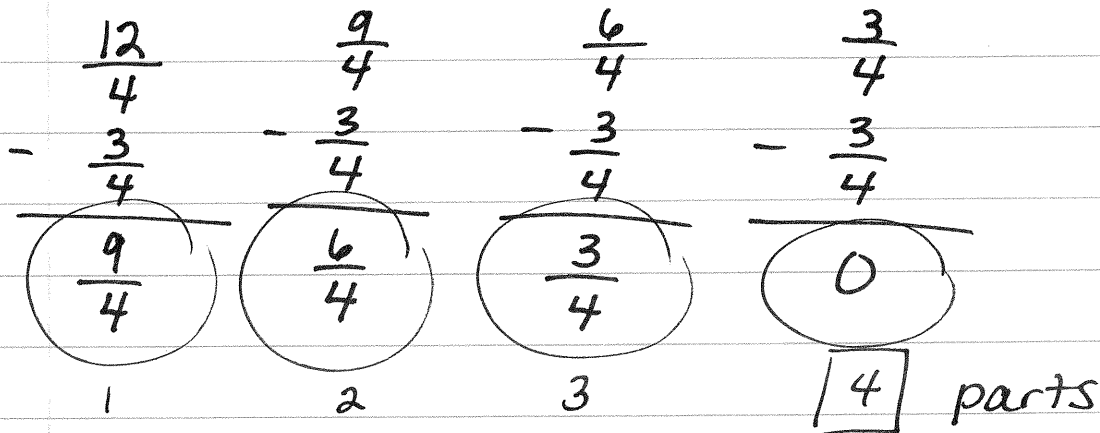 12/4 9/4 6/4 3/4
- 3/4 - 3/4 - 3/4 - 3/4
9/4 6/4 3/4 0
1 2 3 4 parts